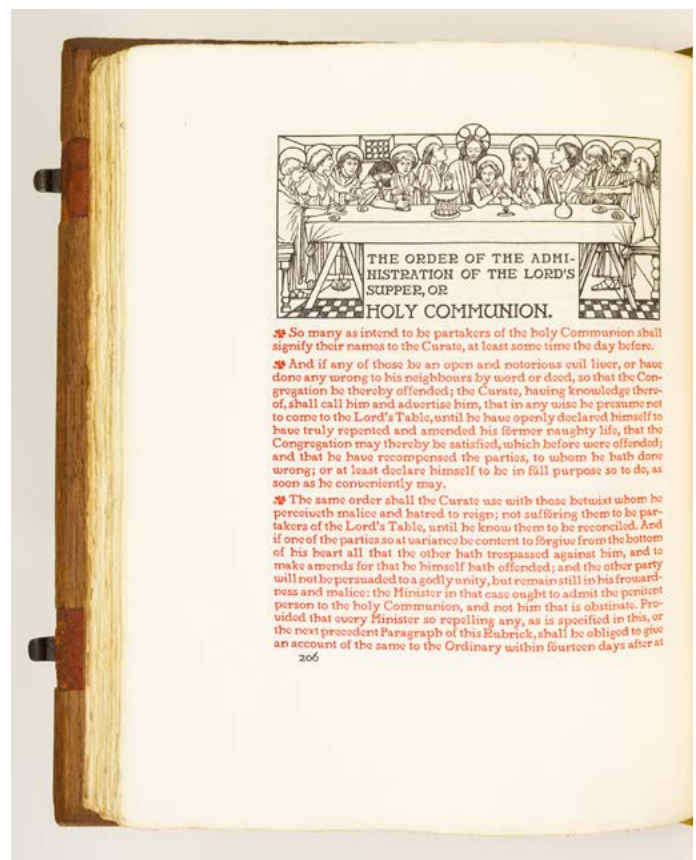 THE ORDER OF THE ADMI-
NISTRATION OF THE LORD'S
SUPPER, OR
HOLY COMMUNION.
So many as intend to be partakers of the holy Communion shall
signify their names to the Curate, at least some time the day before.
And if any of those be an open and notorious evil liver, or have
done any wrong to his neighbours by word or deed, so that the Con-
gregation be thereby offended; the Curate, having knowledge there-
of, shall call him and advertise him, that in any wise he presume not
to come to the Lord's Table, until he have openly declared himself to
have truly repented and amended his former naughty life, that the
Congregation may thereby be satisfied, which before were offended;
and that he have recompensed the parties, to whom he hath done
wrong; or at least declare himself to be in full purpose so to do, as
soon as he conveniently may.
The same order shall the Curate use with those betwixt whom he
perceiveth malice and hatred to reign; not suffering them to be par-
takers of the Lord's Table, until he know them to be reconciled. And
if one of the parties so at variance be content to forgive from the bottom
of his heart all that the other hath trespassed against him, and to
make amends for that he himself hath offended; and the other party
will not be persuaded to a godly unity, but remain still in his froward-
ness and malice: the Minister in that case ought to admit the penitent
person to the holy Communion, and not him that is obstinate. Pro-
vided that every Minister so repelling any, as is specified in this, or
the next precedent Paragraph of this Rubrick, shall be obliged to give
an account of the same to the Ordinary within fourteen days after at
206